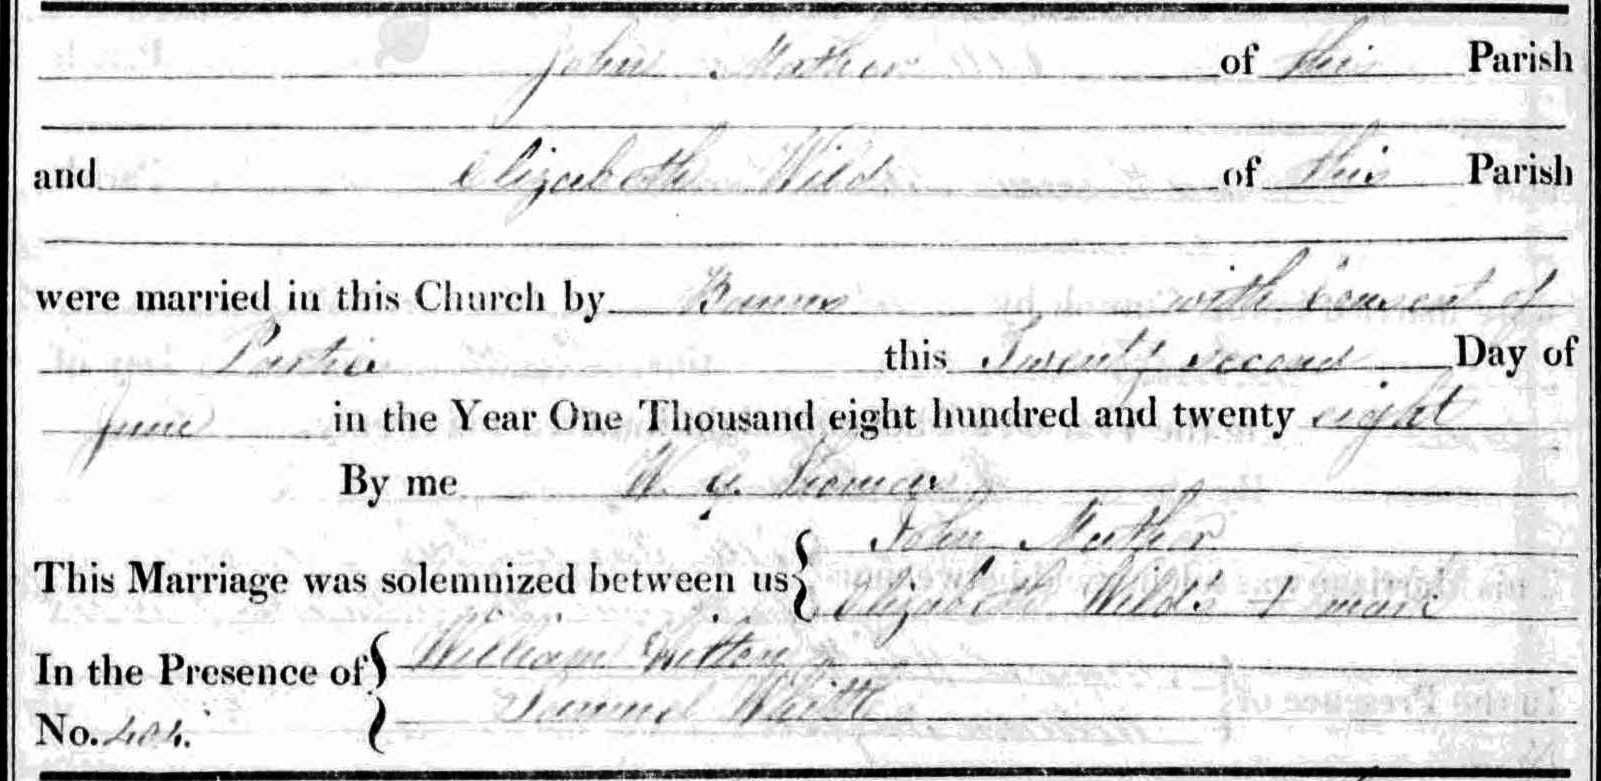 John Mather of this Parish
and Elizabeth Wild of this Parish
were married in this Church by Banns with Consent of
Parties this Twenty second Day of
June in the Year One Thousand eight hundred and twenty eight
By me W. G.
John Mather
This Marriage was solemnized between us
Elizabeth Wild's + mark
In the Presence of William
Samuel Whittle
No. 404.